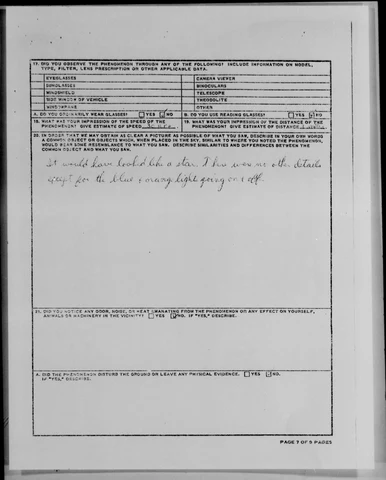 17. DID YOU OBSERVE THE PHENOMENON THROUGH ANY OF THE FOLLOWING? INCLUDE INFORMATION ON MODEL,
TYPE, FILTER, LENS PRESCRIPTION OR OTHER APPLICABLE DATA.
EYEGLASSES CAMERA VIEWER
SUNGLASSES BINOCULARS
WINDSHIELD TELESCOPE
SIDE WINDOW OF VEHICLE THEODOLITE
WINDOWPANE OTHER
A. DO YOU ORDINARILY WEAR GLASSES? YES NO B. DO YOU USE READING GLASSES? YES NO
18. WHAT WAS YOUR IMPRESSION OF THE SPEED OF THE 19. WHAT WAS YOUR IMPRESSION OF THE DISTANCE OF THE
PHENOMENON? GIVE ESTIMATE OF SPEED PHENOMENON? GIVE ESTIMATE OF DISTANCE
20. IN ORDER THAT WE MAY OBTAIN AS CLEAR A PICTURE AS POSSIBLE OF WHAT YOU SAW, DESCRIBE IN YOUR OWN WORDS
A COMMON OBJECT OR OBJECTS WHICH, WHEN PLACED IN THE SKY, SIMILAR TO WHERE YOU NOTED THE PHENOMENON,
WOULD BEAR SOME RESEMBLANCE TO WHAT YOU SAW. DESCRIBE SIMILARITIES AND DIFFERENCES BETWEEN THE
COMMON OBJECT AND WHAT YOU SAW.
It would have looked like a star. There was no other details
except for the blue + orange light going on + off.
21. DID YOU NOTICE ANY ODOR, NOISE, OR HEAT EMANATING FROM THE PHENOMENON OR ANY EFFECT ON YOURSELF,
ANIMALS OR MACHINERY IN THE VICINITY? YES NO. IF "YES," DESCRIBE.
A. DID THE PHENOMENON DISTURB THE GROUND OR LEAVE ANY PHYSICAL EVIDENCE. YES NO
IF "YES," DESCRIBE.
PAGE 7 OF 9 PAGES